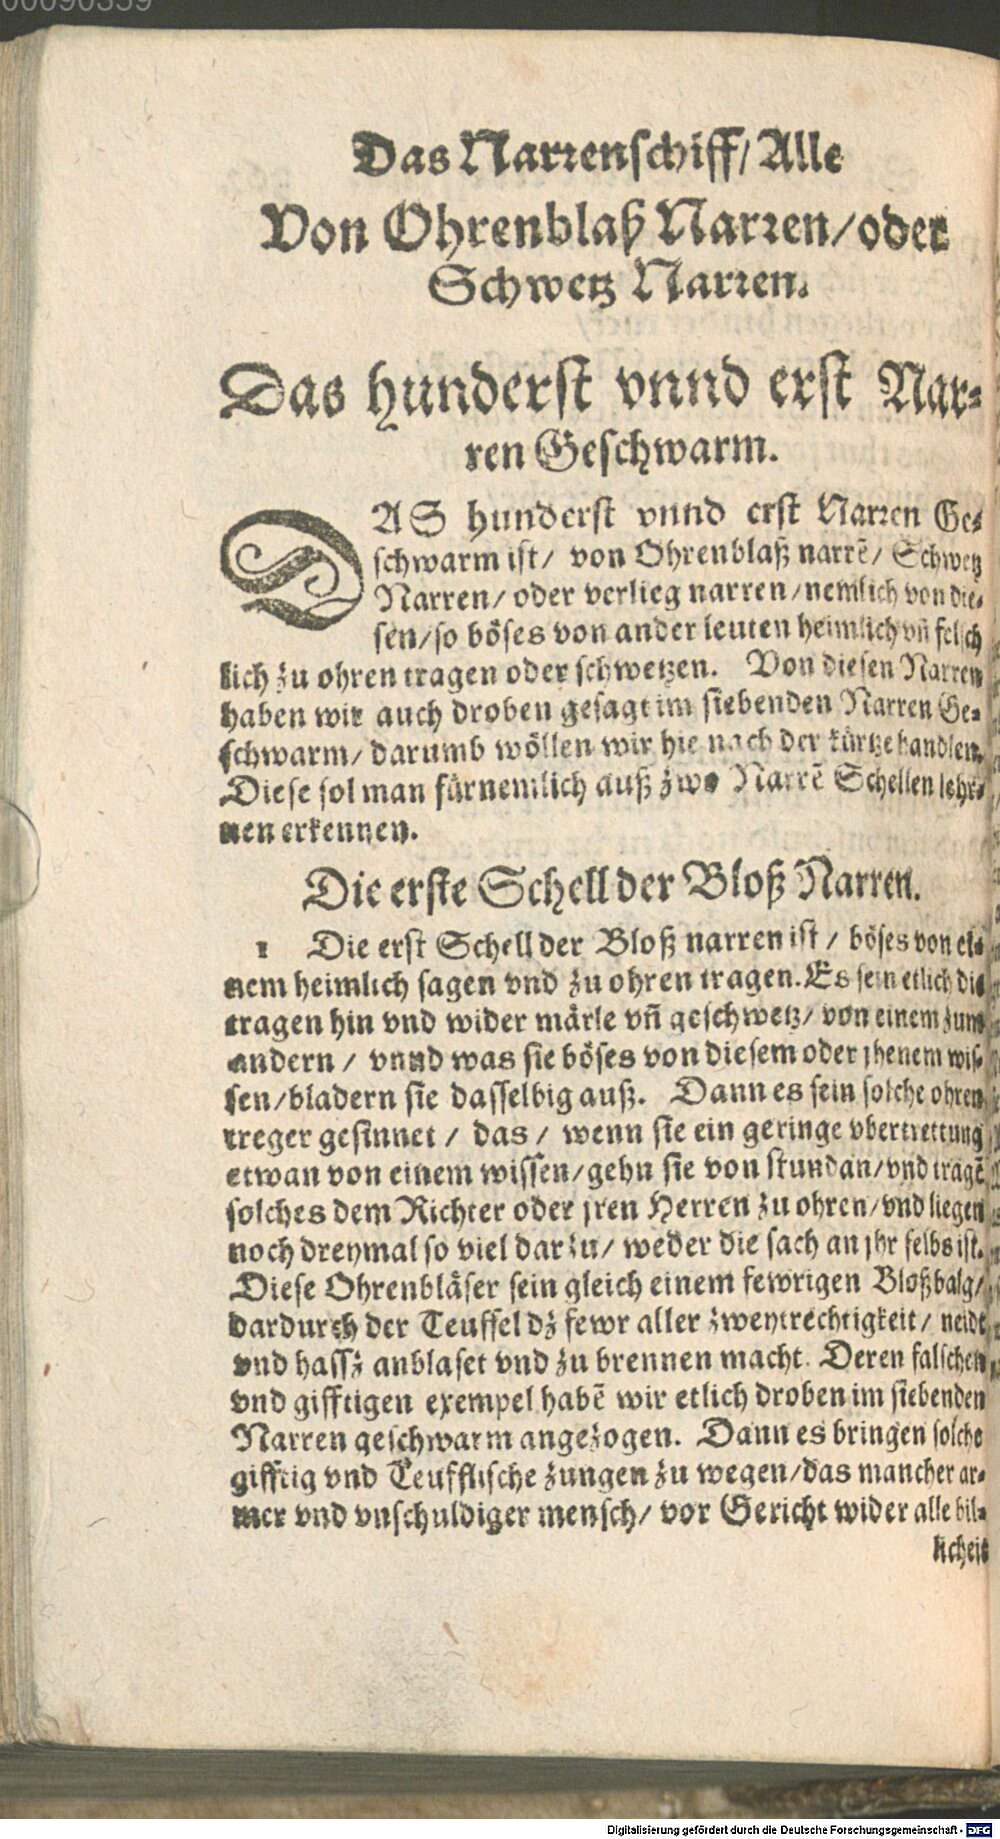 00090359
Das Narrenschiff/ Alle
Von Ohrenblaß Narren/ oder
Schwetz Narren.
Das hunderst vnnd erst Nar⸗
ren Geschwarm.
DAS hunderst vnnd erst Narren Ge⸗
schwarm ist/ von Ohrenblaß narrẽ/ Schwetz
Narren/ oder verlieg narren/ nemlich von die⸗
sen/ so böses von ander leuten heimlich vñ felsch
lich zu ohren tragen oder schwetzen. Von diesen Narren
haben wir auch droben gesagt im siebenden Narren Ge⸗
schwarm/ darumb wöllen wir hie nach der kürtze handlen.
Diese sol man fürnemlich auß zwo Narrẽ Schellen lehr⸗
nen erkennen.
Die erste Schell der Bloß Narren.
1 Die erst Schell der Bloß narren ist / böses von ei⸗
nem heimlich sagen vnd zu ohren tragen. Es sein etlich die
tragen hin vnd wider märle vñ geschwetz/ von einem zum
andern / vnnd was sie böses von diesem oder jhenem wis⸗
sen/ bladern sie dasselbig auß. Dann es sein solche ohren
treger gesinnet / das / wenn sie ein geringe vbertrettung
etwan von einem wissen/ gehn sie von stund an/ vnd tragẽ
solches dem Richter oder jren Herren zu ohren/ vnd liegen
noch dreymal so viel darzu/ weder die sach an jhr selbs ist.
Diese Ohrenbläser sein gleich einem fewrigen Bloßbalg/
dardurch der Teuffel dz fewr aller zweytrechtigkeit/ neidt
vnd hassz anblaset vnd zu brennen macht. Deren falschen
vnd gifftigen exempel habẽ wir etlich droben im siebenden
Narren geschwarm angezogen. Dann es bringen solche
gifftig vnd Teufflische zungen zu wegen/ das mancher ar⸗
mer vnd vnschuldiger mensch/ vor Gericht wider alle bil⸗
licheit
Digitalisierung gefördert durch die Deutsche Forschungsgemeinschaft - DFG